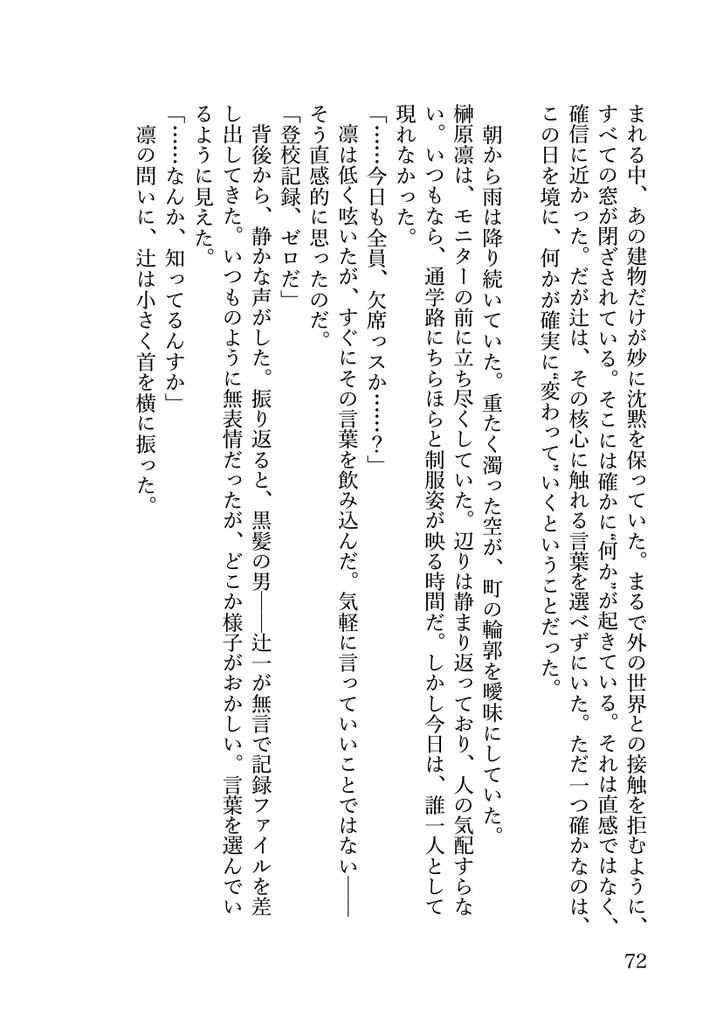 まれる中、あの建物だけが妙に沈黙を保っていた。まるで外の世界との接触を拒むように、
すべての窓が閉ざされている。そこには確かに〝何か〟が起きている。それは直感ではなく、
確信に近かった。だが辻は、その核心に触れる言葉を選べずにいた。ただ一つ確かなのは、
この日を境に、何かが確実に〝変わって〟いくということだった。
朝から雨は降り続いていた。重たく濁った空が、町の輪郭を曖昧にしていた。
榊原凛は、モニターの前に立ち尽くしていた。辺りは静まり返っており、人の気配すらな
い。いつもなら、通学路にちらほらと制服姿が映る時間だ。しかし今日は、誰一人として
現れなかった。
「……今日も全員、欠席っスか……？」
凛は低く呟いたが、すぐにその言葉を飲み込んだ。気軽に言っていいことではない――
そう直感的に思ったのだ。
「登校記録、ゼロだ」
背後から、静かな声がした。振り返ると、黒髪の男――辻一が無言で記録ファイルを差
し出してきた。いつものように無表情だったが、どこか様子がおかしい。言葉を選んでい
るように見えた。
「……なんか、知ってるんすか」
凛の問いに、辻は小さく首を横に振った。
72